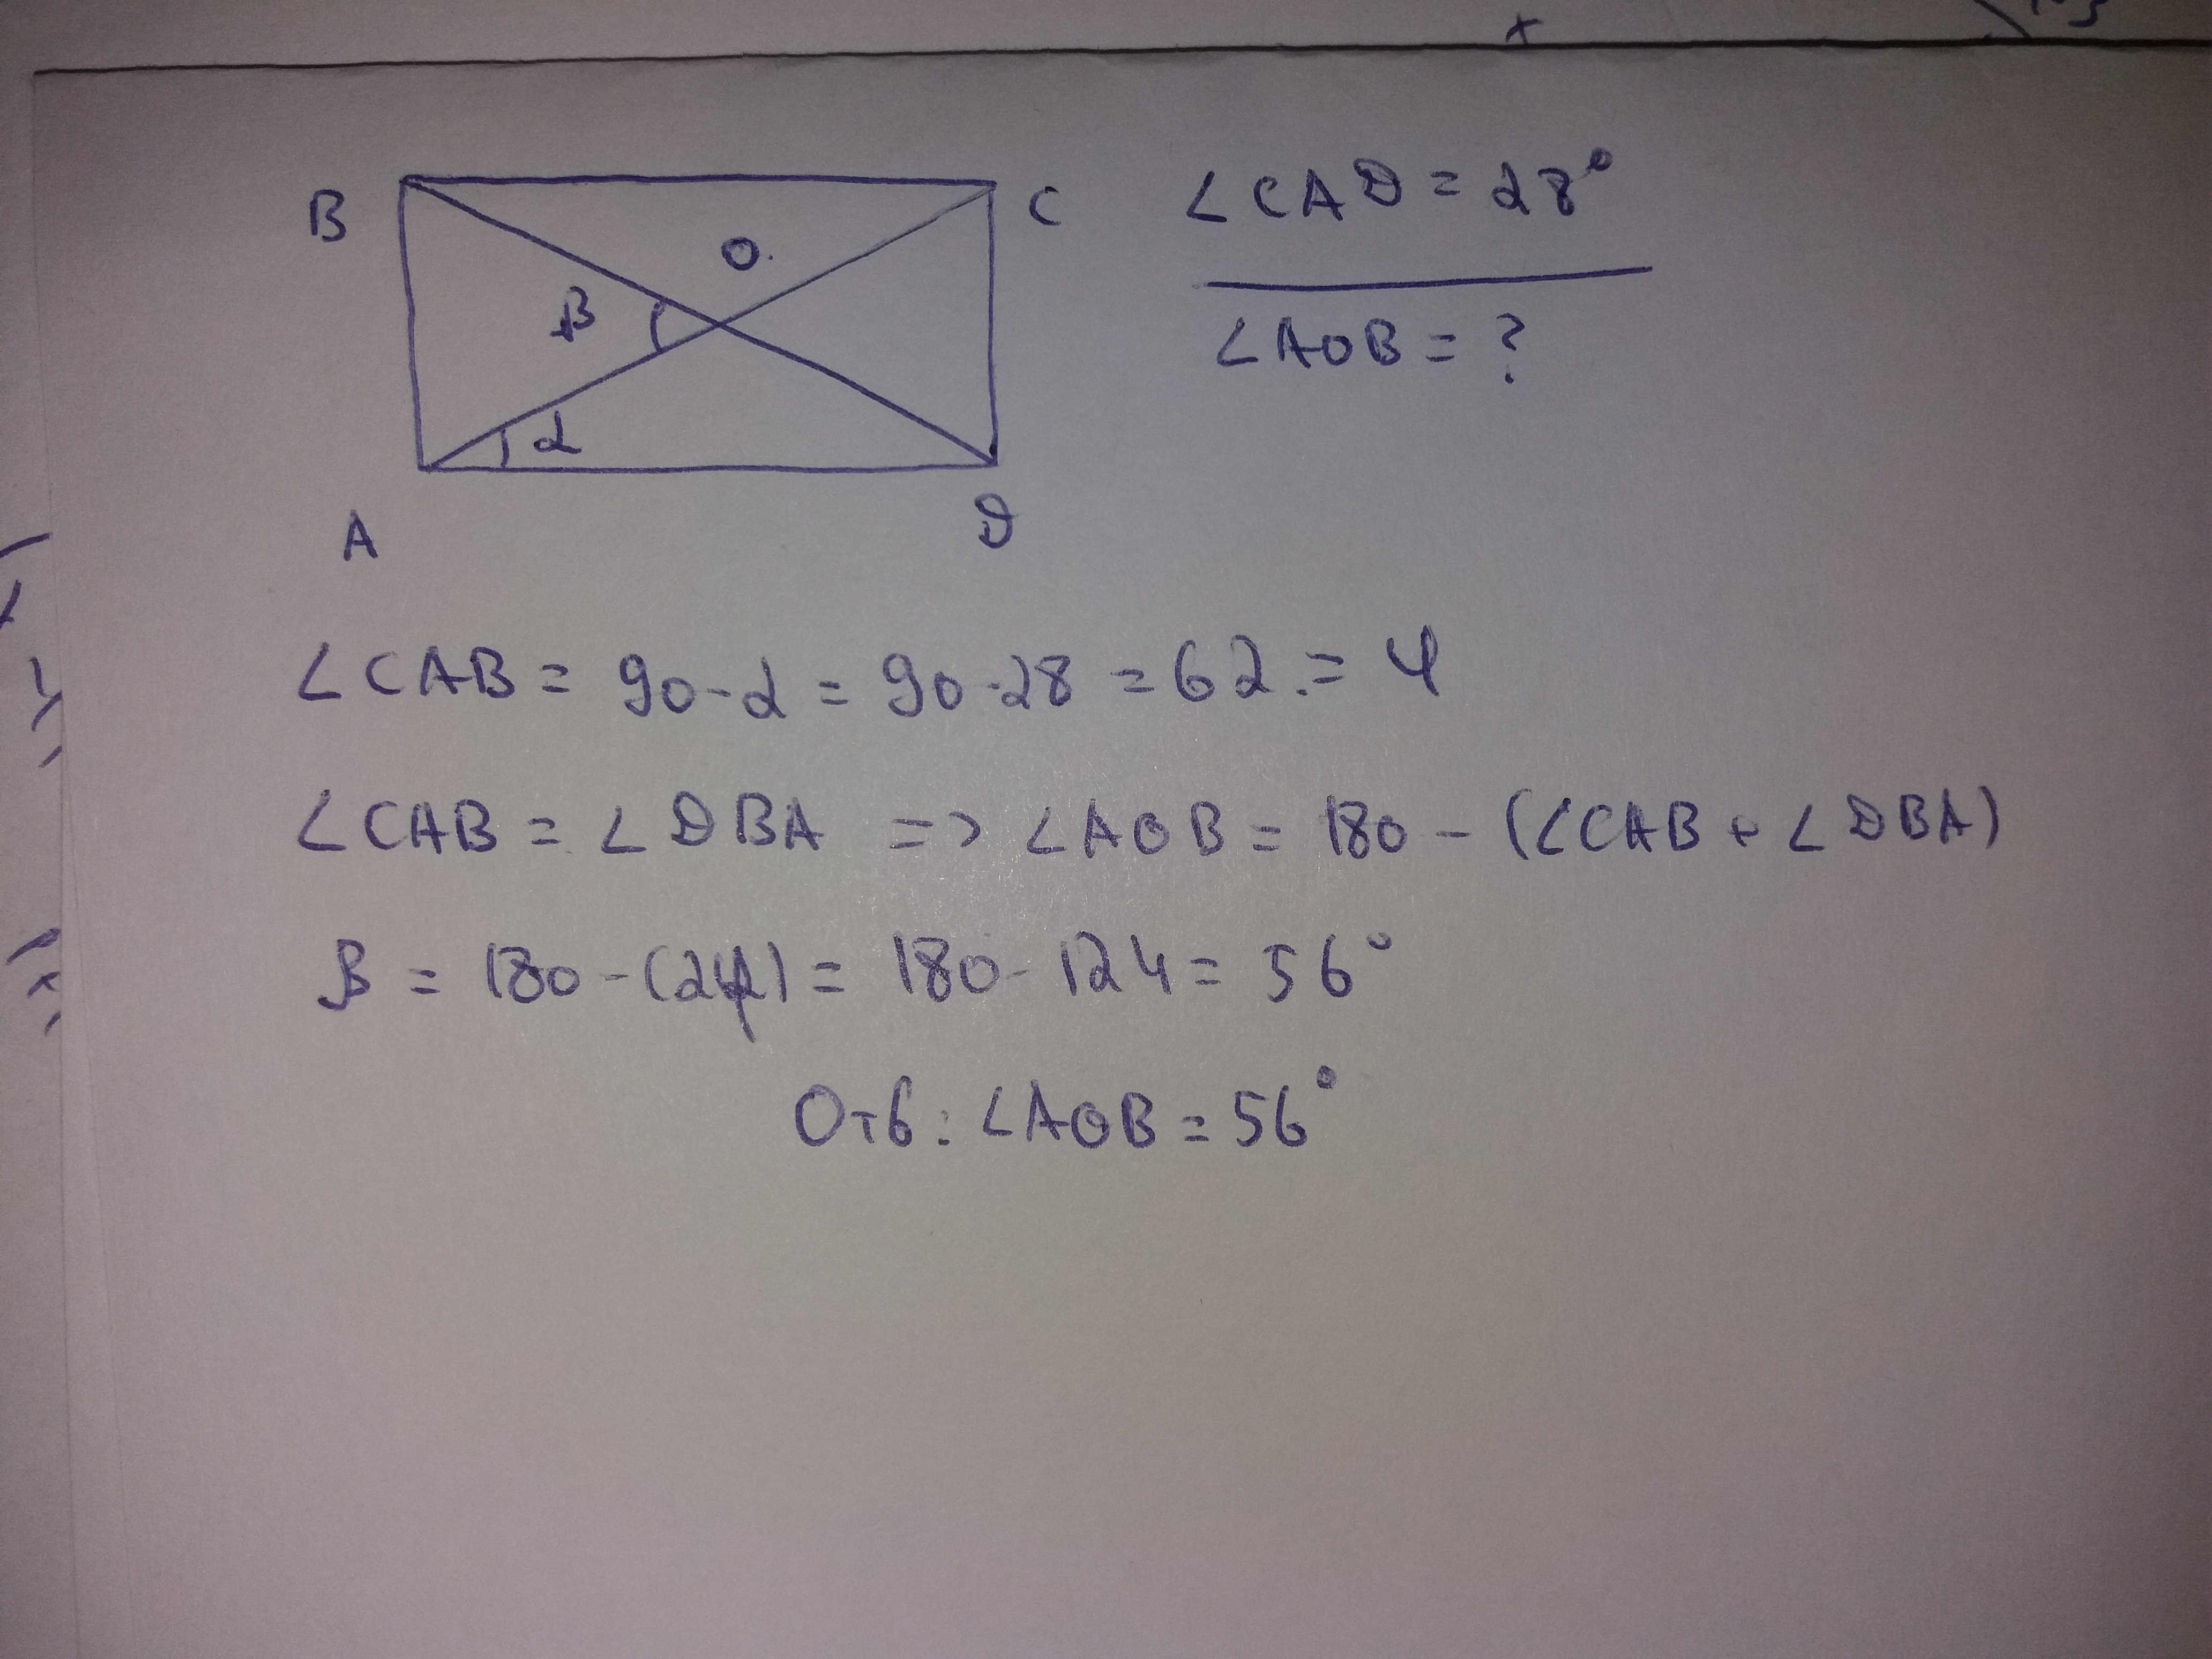 B
C
O.
β
α
A
D
∠CAD = 28°
∠AOB = ?
∠CAB = 90-α = 90-28 = 62. = φ
∠CAB = ∠DBA => ∠AOB = 180 - (∠CAB + ∠DBA)
β = 180 - (2φ) = 180 - 124 = 56°
Отв: ∠AOB = 56°